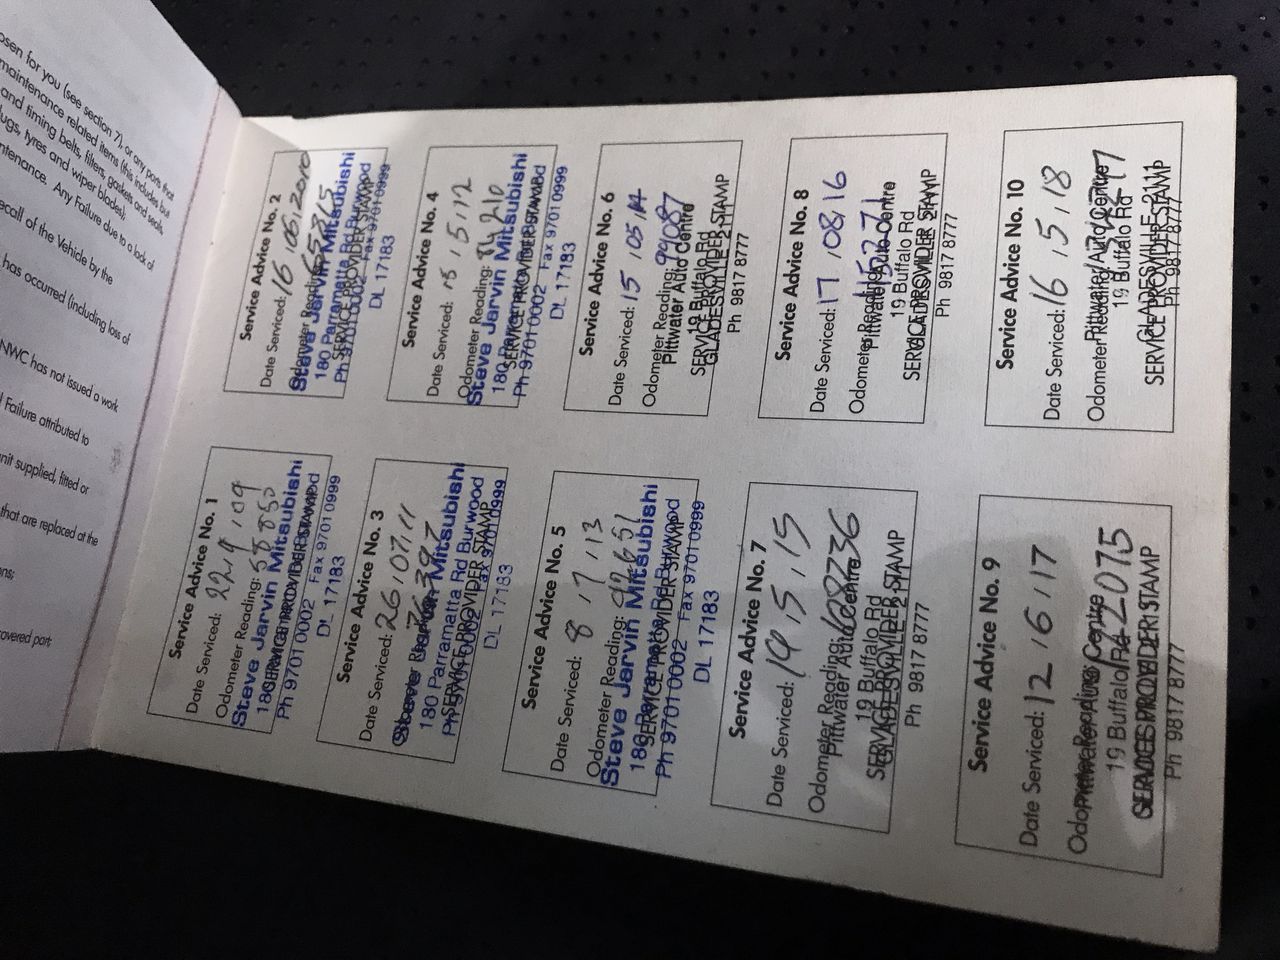 osen for you (see section 7), or any parts that
maintenance related items (this includes but
and timing belts, filters, gaskets and seals,
ugs, tyres and wiper blades).
ntenance. Any Failure due to a lack of
ecall of the Vehicle by the
has occurred (including loss of
NWC has not issued a work
Failure attributed to
nit supplied, fitted or
that are replaced at the
ons;
overed part
Service Advice No. 1
Date Serviced: 22/9/09
Odometer Reading: 58850
Steve Jarvin Mitsubishi
SERVICE PROVIDER STAMP
Ph 9701 0002 Fax 9701 0999
DL 17183
Service Advice No. 2
Date Serviced: 16/06/2010
Odometer Reading: 65315
Steve Jarvin Mitsubishi
180 Parramatta Rd Burwood
SERVICE PROVIDER STAMP
Ph 9701 0002 Fax 9701 0999
DL 17183
Service Advice No. 3
Date Serviced: 26/07/11
Steve Jarvin Mitsubishi
180 Parramatta Rd Burwood
SERVICE PROVIDER STAMP
Ph 9701 0002 Fax 9701 0999
DL 17183
Service Advice No. 4
Date Serviced: 15/5/12
Odometer Reading: 84210
Steve Jarvin Mitsubishi
SERVICE PROVIDER STAMP
Ph 9701 0002 Fax 9701 0999
DL 17183
Service Advice No. 5
Date Serviced: 8/7/13
Odometer Reading: 92651
Steve Jarvin Mitsubishi
180 Parramatta Rd Burwood
SERVICE PROVIDER STAMP
Ph 9701 0002 Fax 9701 0999
DL 17183
Service Advice No. 6
Date Serviced: 15/05/14
Odometer Reading: 99087
Pittwater Auto Centre
19 Buffalo Rd
SERVICE PROVIDER STAMP
GLADESVILLE 2111
Ph 9817 8777
Service Advice No. 7
Date Serviced: 19/5/15
Odometer Reading: 108736
Pittwater Auto Centre
19 Buffalo Rd
SERVICE PROVIDER STAMP
GLADESVILLE 2111
Ph 9817 8777
Service Advice No. 8
Date Serviced: 17/08/16
Odometer Reading: 115271
Pittwater Auto Centre
19 Buffalo Rd
SERVICE PROVIDER STAMP
GLADESVILLE 2111
Ph 9817 8777
Service Advice No. 9
Date Serviced: 12/6/17
Odometer Reading: 122075
Pittwater Auto Centre
19 Buffalo Rd
SERVICE PROVIDER STAMP
Ph 9817 8777
Service Advice No. 10
Date Serviced: 16/5/18
Odometer Reading:
Pittwater Auto Centre
19 Buffalo Rd
GLADESVILLE 2111
SERVICE PROVIDER STAMP
Ph 9817 8777